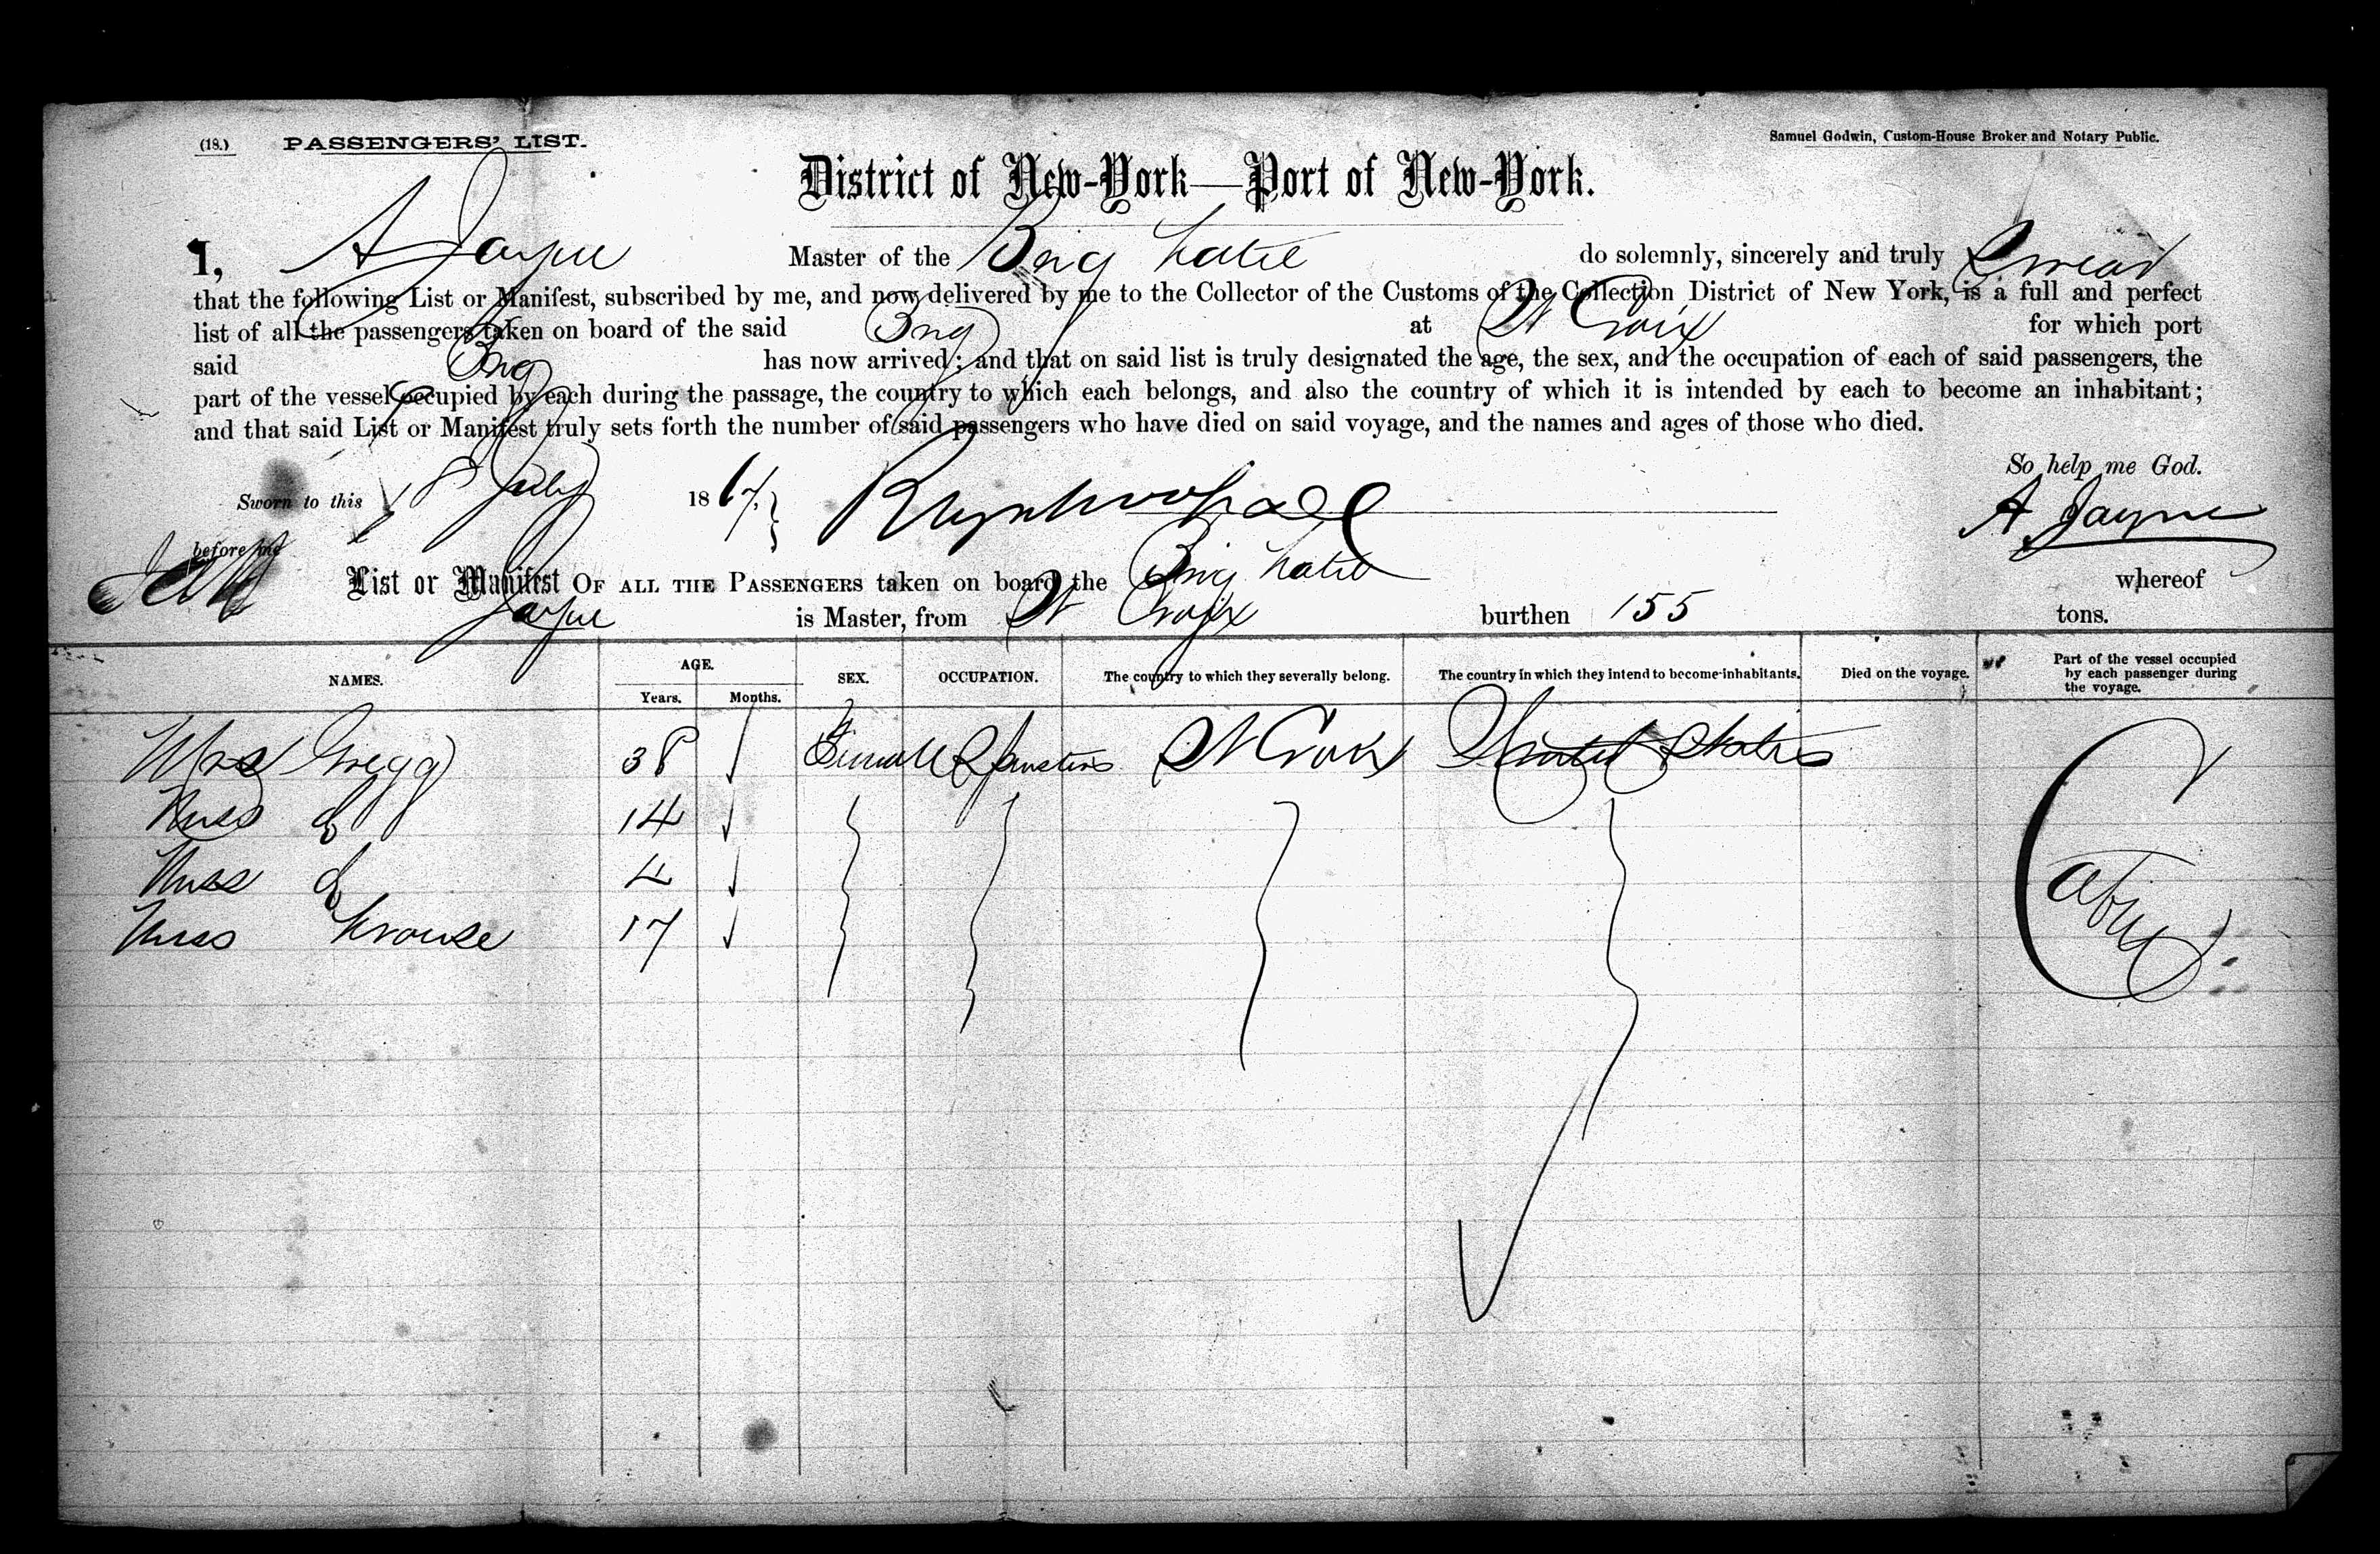 (18.) PASSENGERS' LIST. Samuel Godwin, Custom-House Broker and Notary Public.
District of New-York—Port of New-York.
I, A Jayne Master of the Brig Katie do solemnly, sincerely and truly Swear
that the following List or Manifest, subscribed by me, and now delivered by me to the Collector of the Customs of the Collection District of New York, is a full and perfect
list of all the passengers taken on board of the said Brig at St Croix for which port
said Brig has now arrived; and that on said list is truly designated the age, the sex, and the occupation of each of said passengers, the
part of the vessel occupied by each during the passage, the country to which each belongs, and also the country of which it is intended by each to become an inhabitant;
and that said List or Manifest truly sets forth the number of said passengers who have died on said voyage, and the names and ages of those who died.
So help me God.
Sworn to this 8 July 1867. A Jayne
before me
List or Manifest OF ALL THE PASSENGERS taken on board the Brig Katie whereof
Jayne is Master, from St Croix burthen 155 tons.
NAMES. AGE. Years. Months. SEX. OCCUPATION. The country to which they severally belong. The country in which they intend to become inhabitants. Died on the voyage. Part of the vessel occupied by each passenger during the voyage.
Mrs Gregg 38 Female Spinsters St Croix United States Cabin
Miss do 14
Miss do 4
Miss Krouse 17